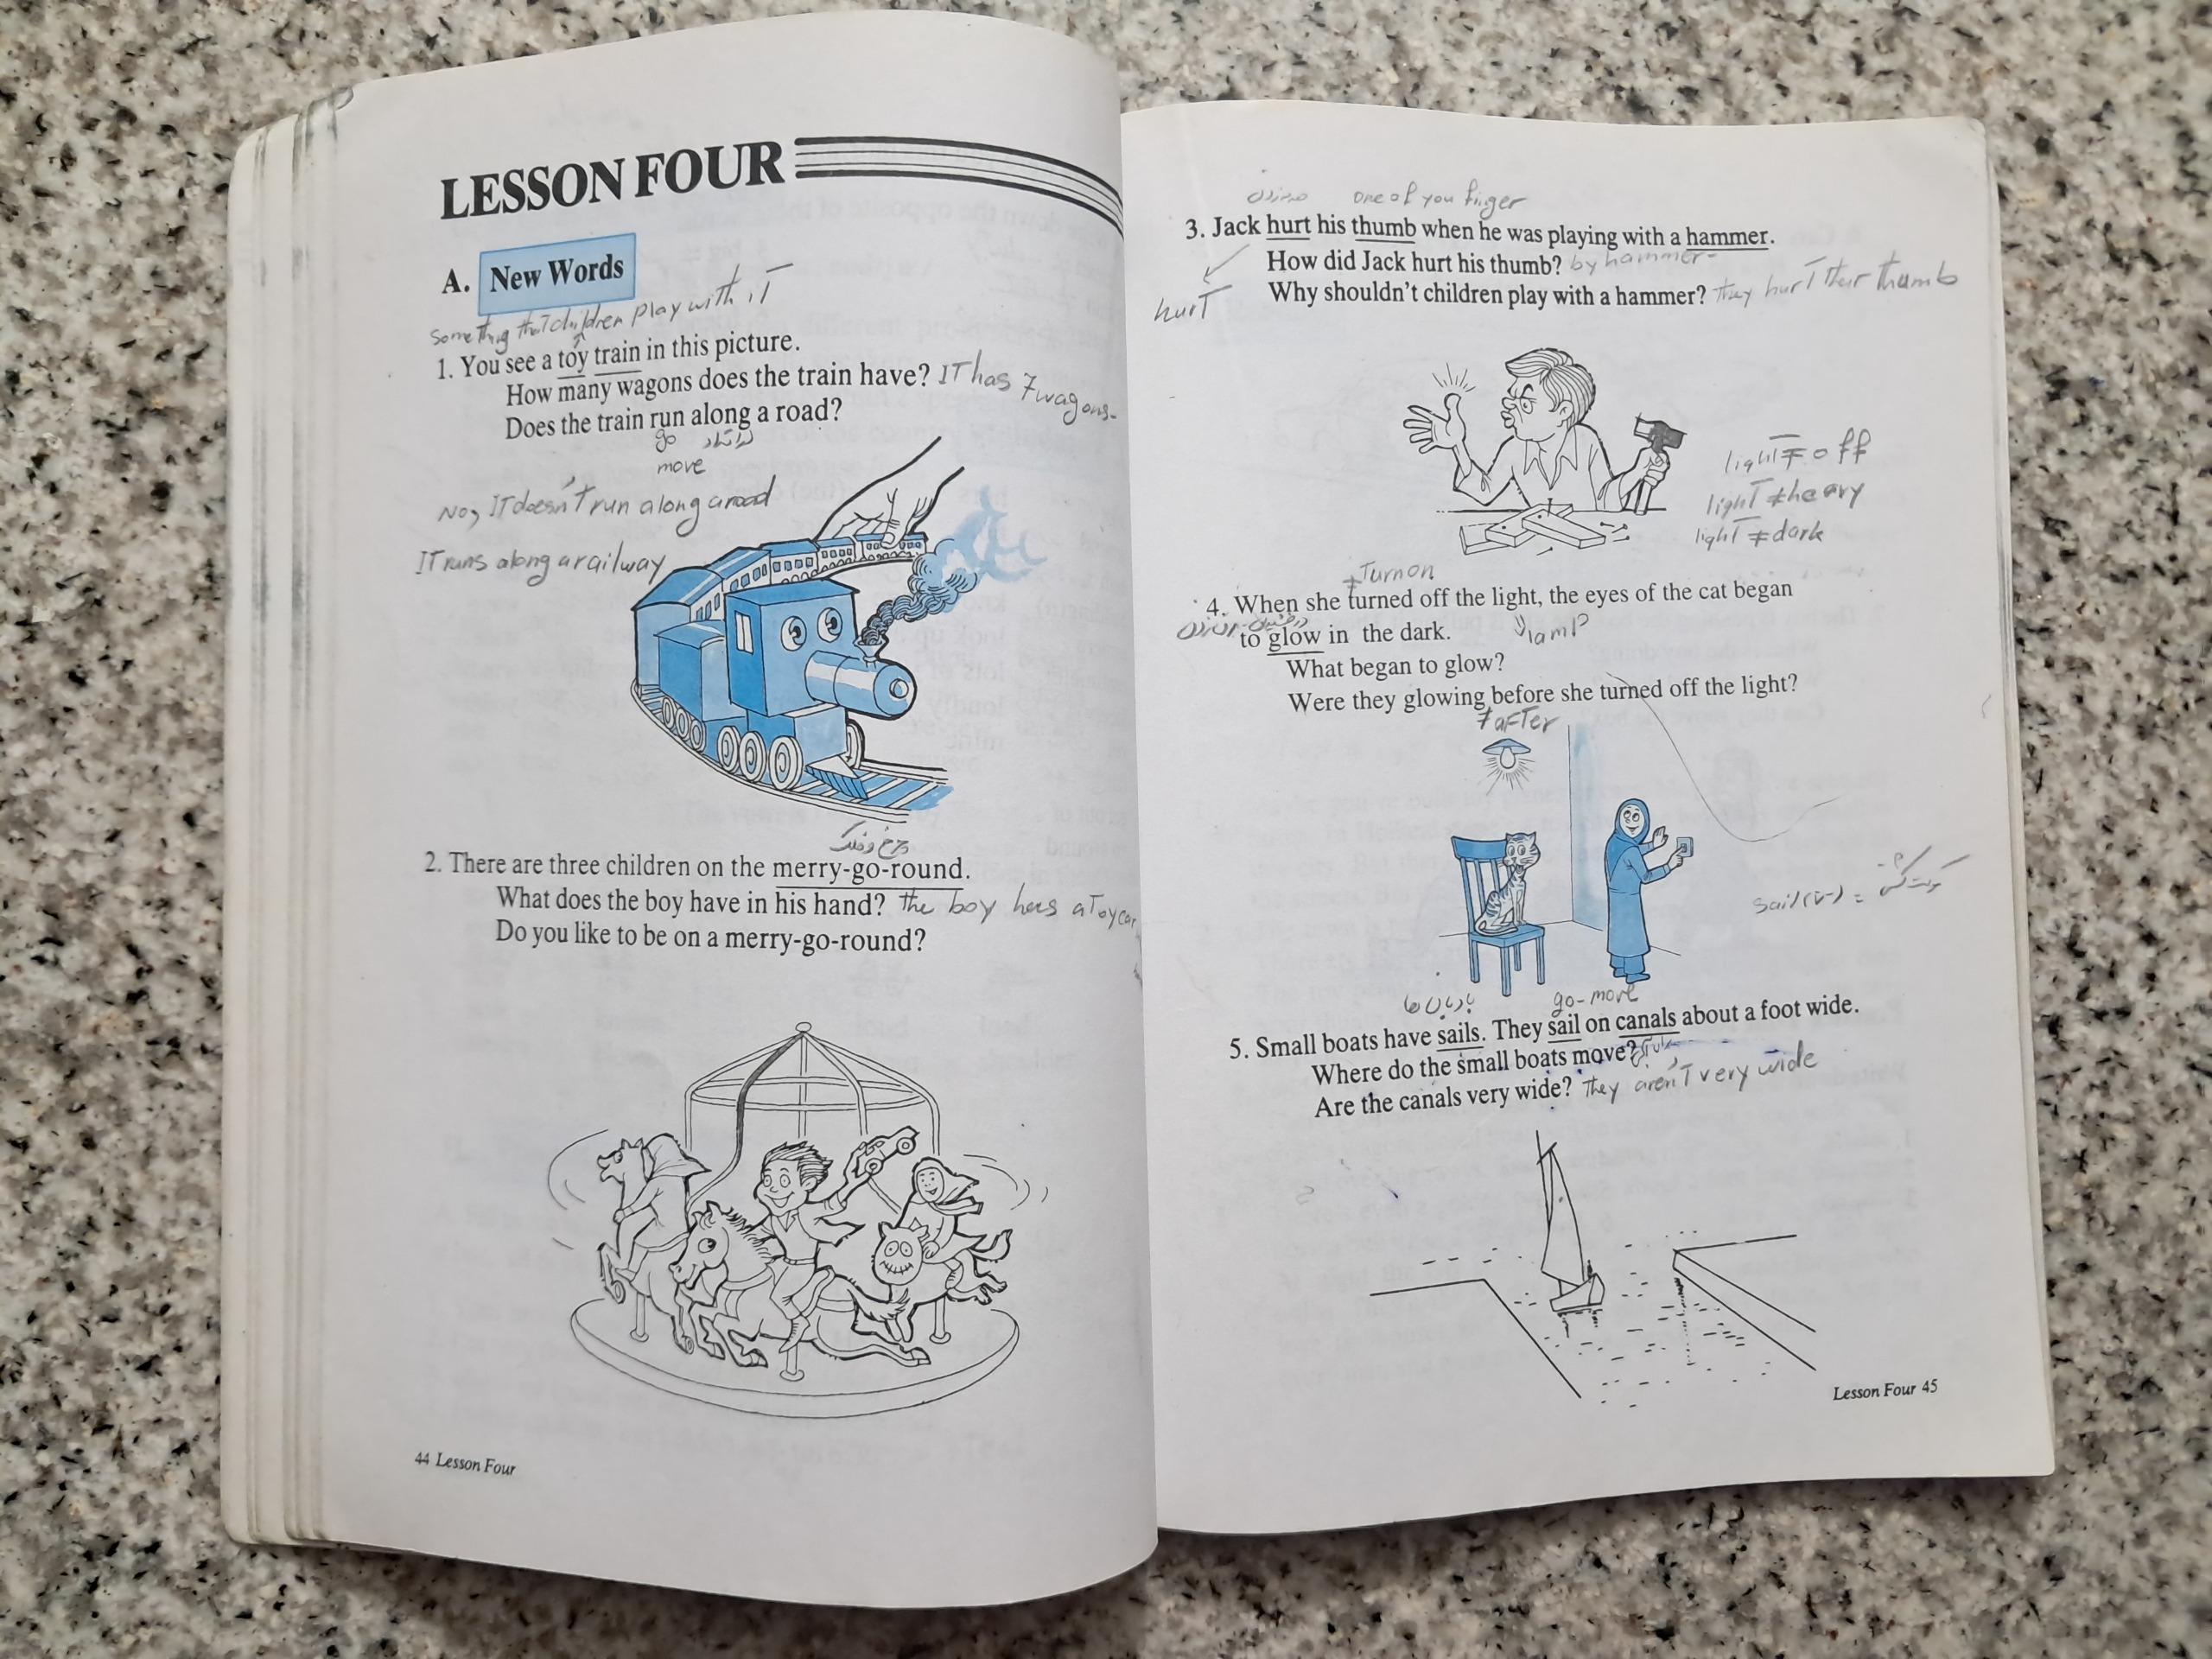 LESSON FOUR
A. New Words
something that children play with it
1. You see a toy train in this picture.
How many wagons does the train have? IT has 7 wagons-
Does the train run along a road?
go
move
No, IT doesn't run along a road
IT runs along a railway
چرخ و فلک
2. There are three children on the merry-go-round.
What does the boy have in his hand? the boy has a Toy car
Do you like to be on a merry-go-round?
44 Lesson Four
one of you finger
3. Jack hurt his thumb when he was playing with a hammer.
How did Jack hurt his thumb? by hammer-
Why shouldn't children play with a hammer? they hurt their thumb
hurt
light ≠ off
light ≠ heavy
light ≠ dark
≠ Turn on
4. When she turned off the light, the eyes of the cat began
to glow in the dark.
lamp
What began to glow?
Were they glowing before she turned off the light?
≠ after
sail (v) =
بادبان ها go-move
5. Small boats have sails. They sail on canals about a foot wide.
Where do the small boats move?
Are the canals very wide? They aren't very wide
Lesson Four 45